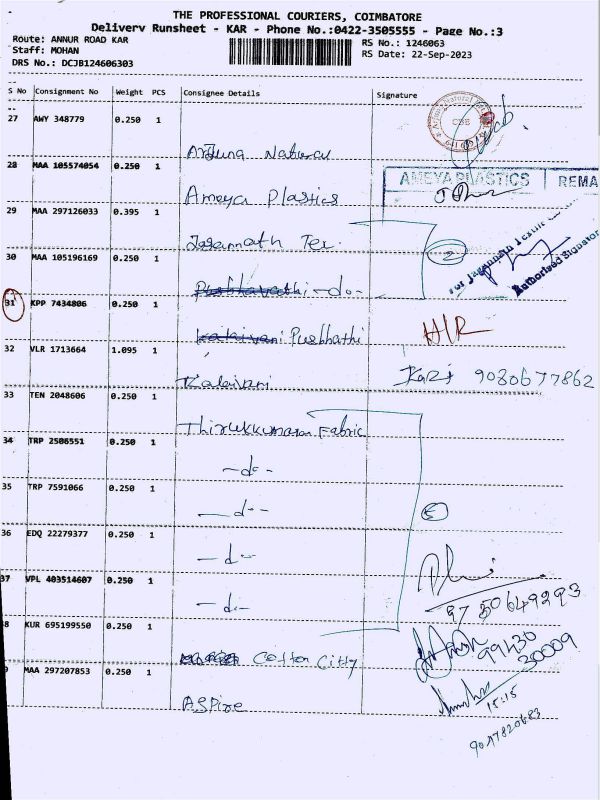 THE PROFESSIONAL COURIERS, COIMBATORE
Delivery Runsheet - KAR - Phone No.:0422-3505555 - Page No.:3
Route: ANNUR ROAD KAR
RS No.: 1246063
Staff: MOHAN
RS Date: 22-Sep-2023
DRS No.: DCJB124606303
S No Consignment No Weight PCS Consignee Details Signature
27 AWY 348779 0.250 1
Arjuna Natural
28 MAA 105574054 0.250 1
AMEYA PLASTICS REMA
Ameya Plastics
29 MAA 297126033 0.395 1
Jagannath Tex.
2
For Jagannath Textile
Authorised Signator
30 MAA 105196169 0.250 1
-do-
31 KPP 7434806 0.250 1
Pushhathi
32 VLR 1713664 1.095 1
Kalaivani
9080677862
33 TEN 2048606 0.250 1
Thirukkumaran Fabric
34 TRP 2506551 0.250 1
-do-
35 TRP 7591066 0.250 1
-do-
5
36 EDQ 22279377 0.250 1
-do-
37 VPL 403514607 0.250 1
-do-
9750649293
8 KUR 695199550 0.250 1
Cotton City
99430
30009
MAA 297207853 0.250 1
ASpire
15:15